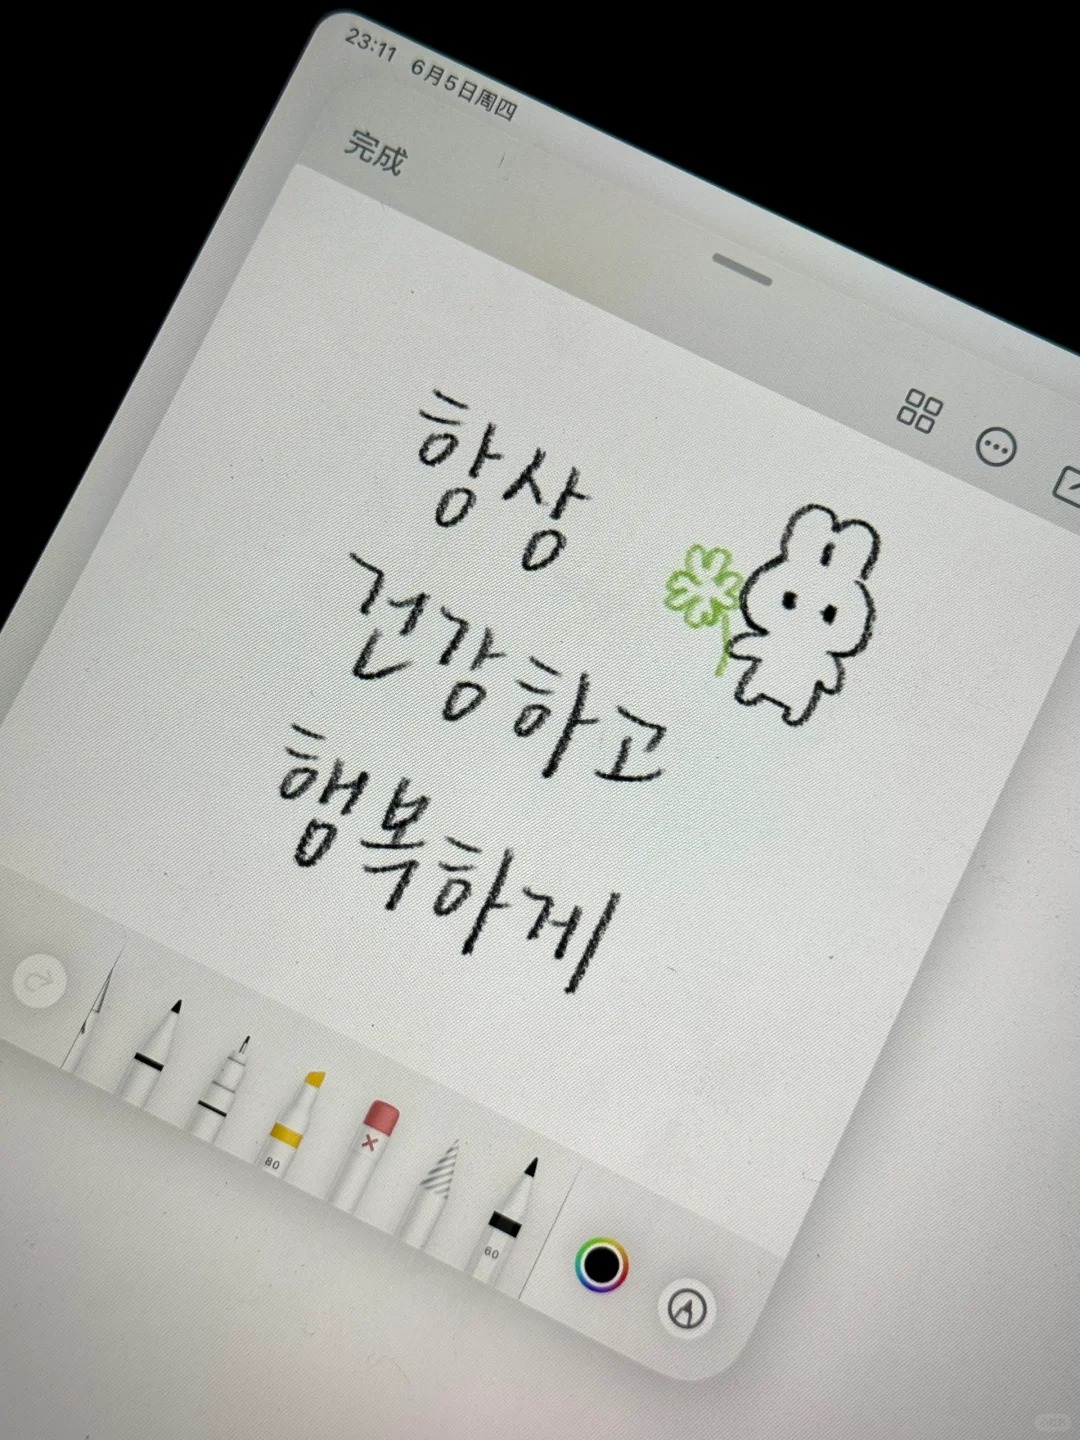 23:11 6月5日周四
完成
항상
건강하고
행복하게
80
60